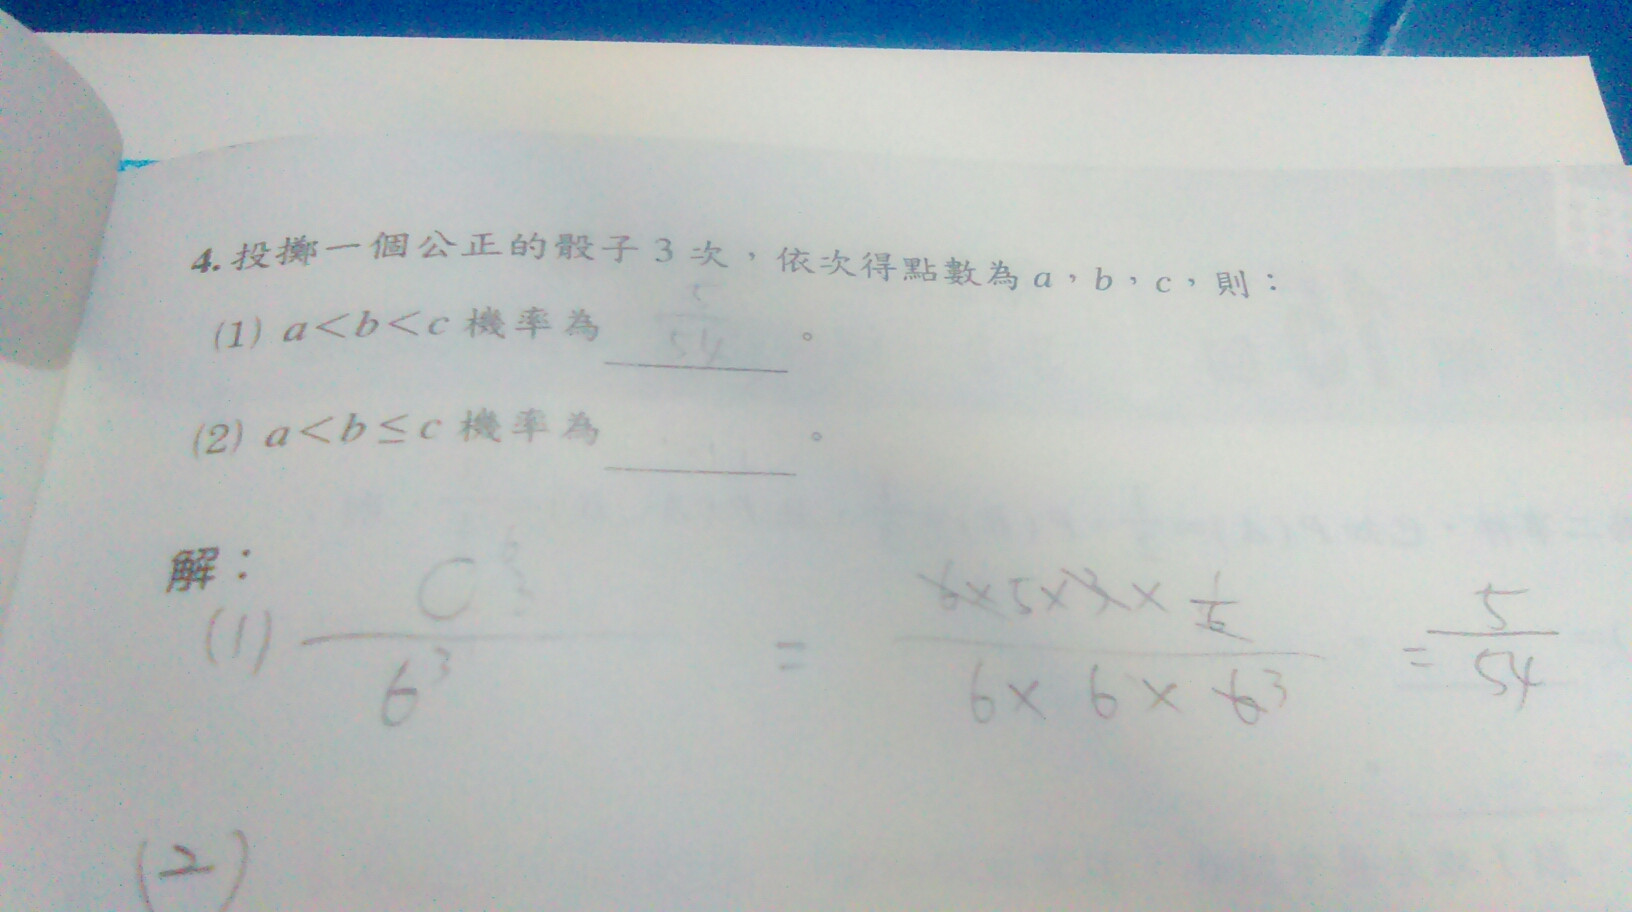 4. 投擲一個公正的骰子 3 次，依次得點數為 a，b，c，則：
(1) a<b<c 機率為 5/54 。
(2) a<b≤c 機率為 。
解：
(1) C^6_3 / 6^3 = 6×5×4×1/6 / 6×6×6 3 = 5/54
(2)